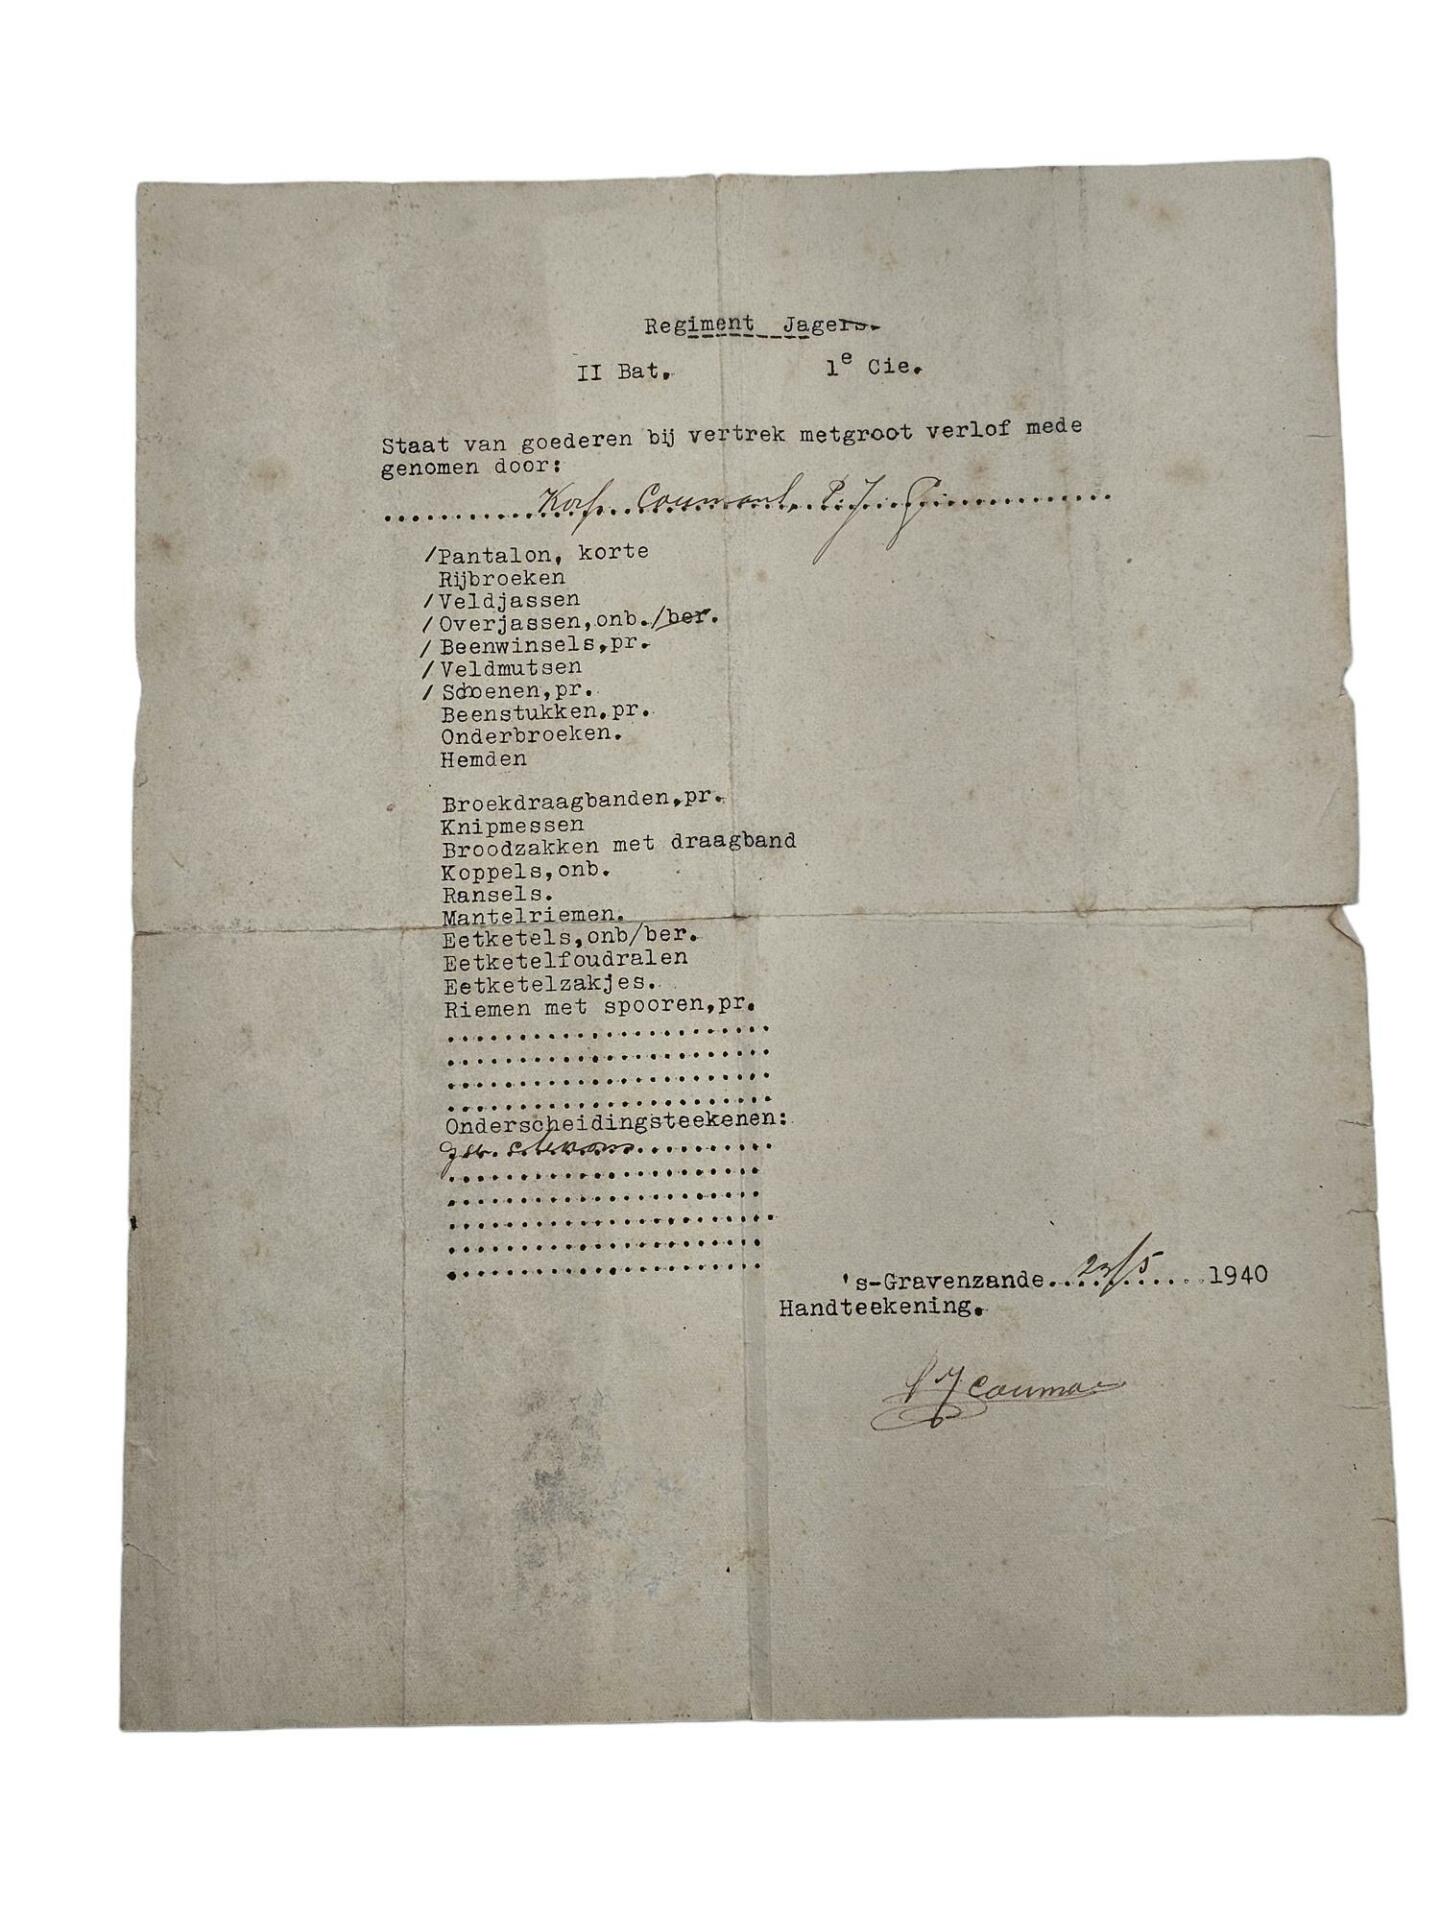 Regiment Jagers.
II Bat. 1e Cie.
Staat van goederen bij vertrek metgroot verlof mede
genomen door:
Korp. Coumans, P. J.
/Pantalon, korte
Rijbroeken
/Veldjassen
/Overjassen,onb./ber.
/Beenwinsels,pr.
/Veldmutsen
/Schoenen,pr.
Beenstukken.pr.
Onderbroeken.
Hemden
Broekdraagbanden,pr.
Knipmessen
Broodzakken met draagband
Koppels,onb.
Ransels.
Mantelriemen.
Eetketels,onb/ber.
Eetketelfoudralen
Eetketelzakjes.
Riemen met spooren,pr.
......................
......................
......................
......................
Onderscheidingsteekenen:
chevrons.........
......................
......................
......................
......................
......................
's-Gravenzande. 23/5 .... 1940
Handteekening.
P J Coumans